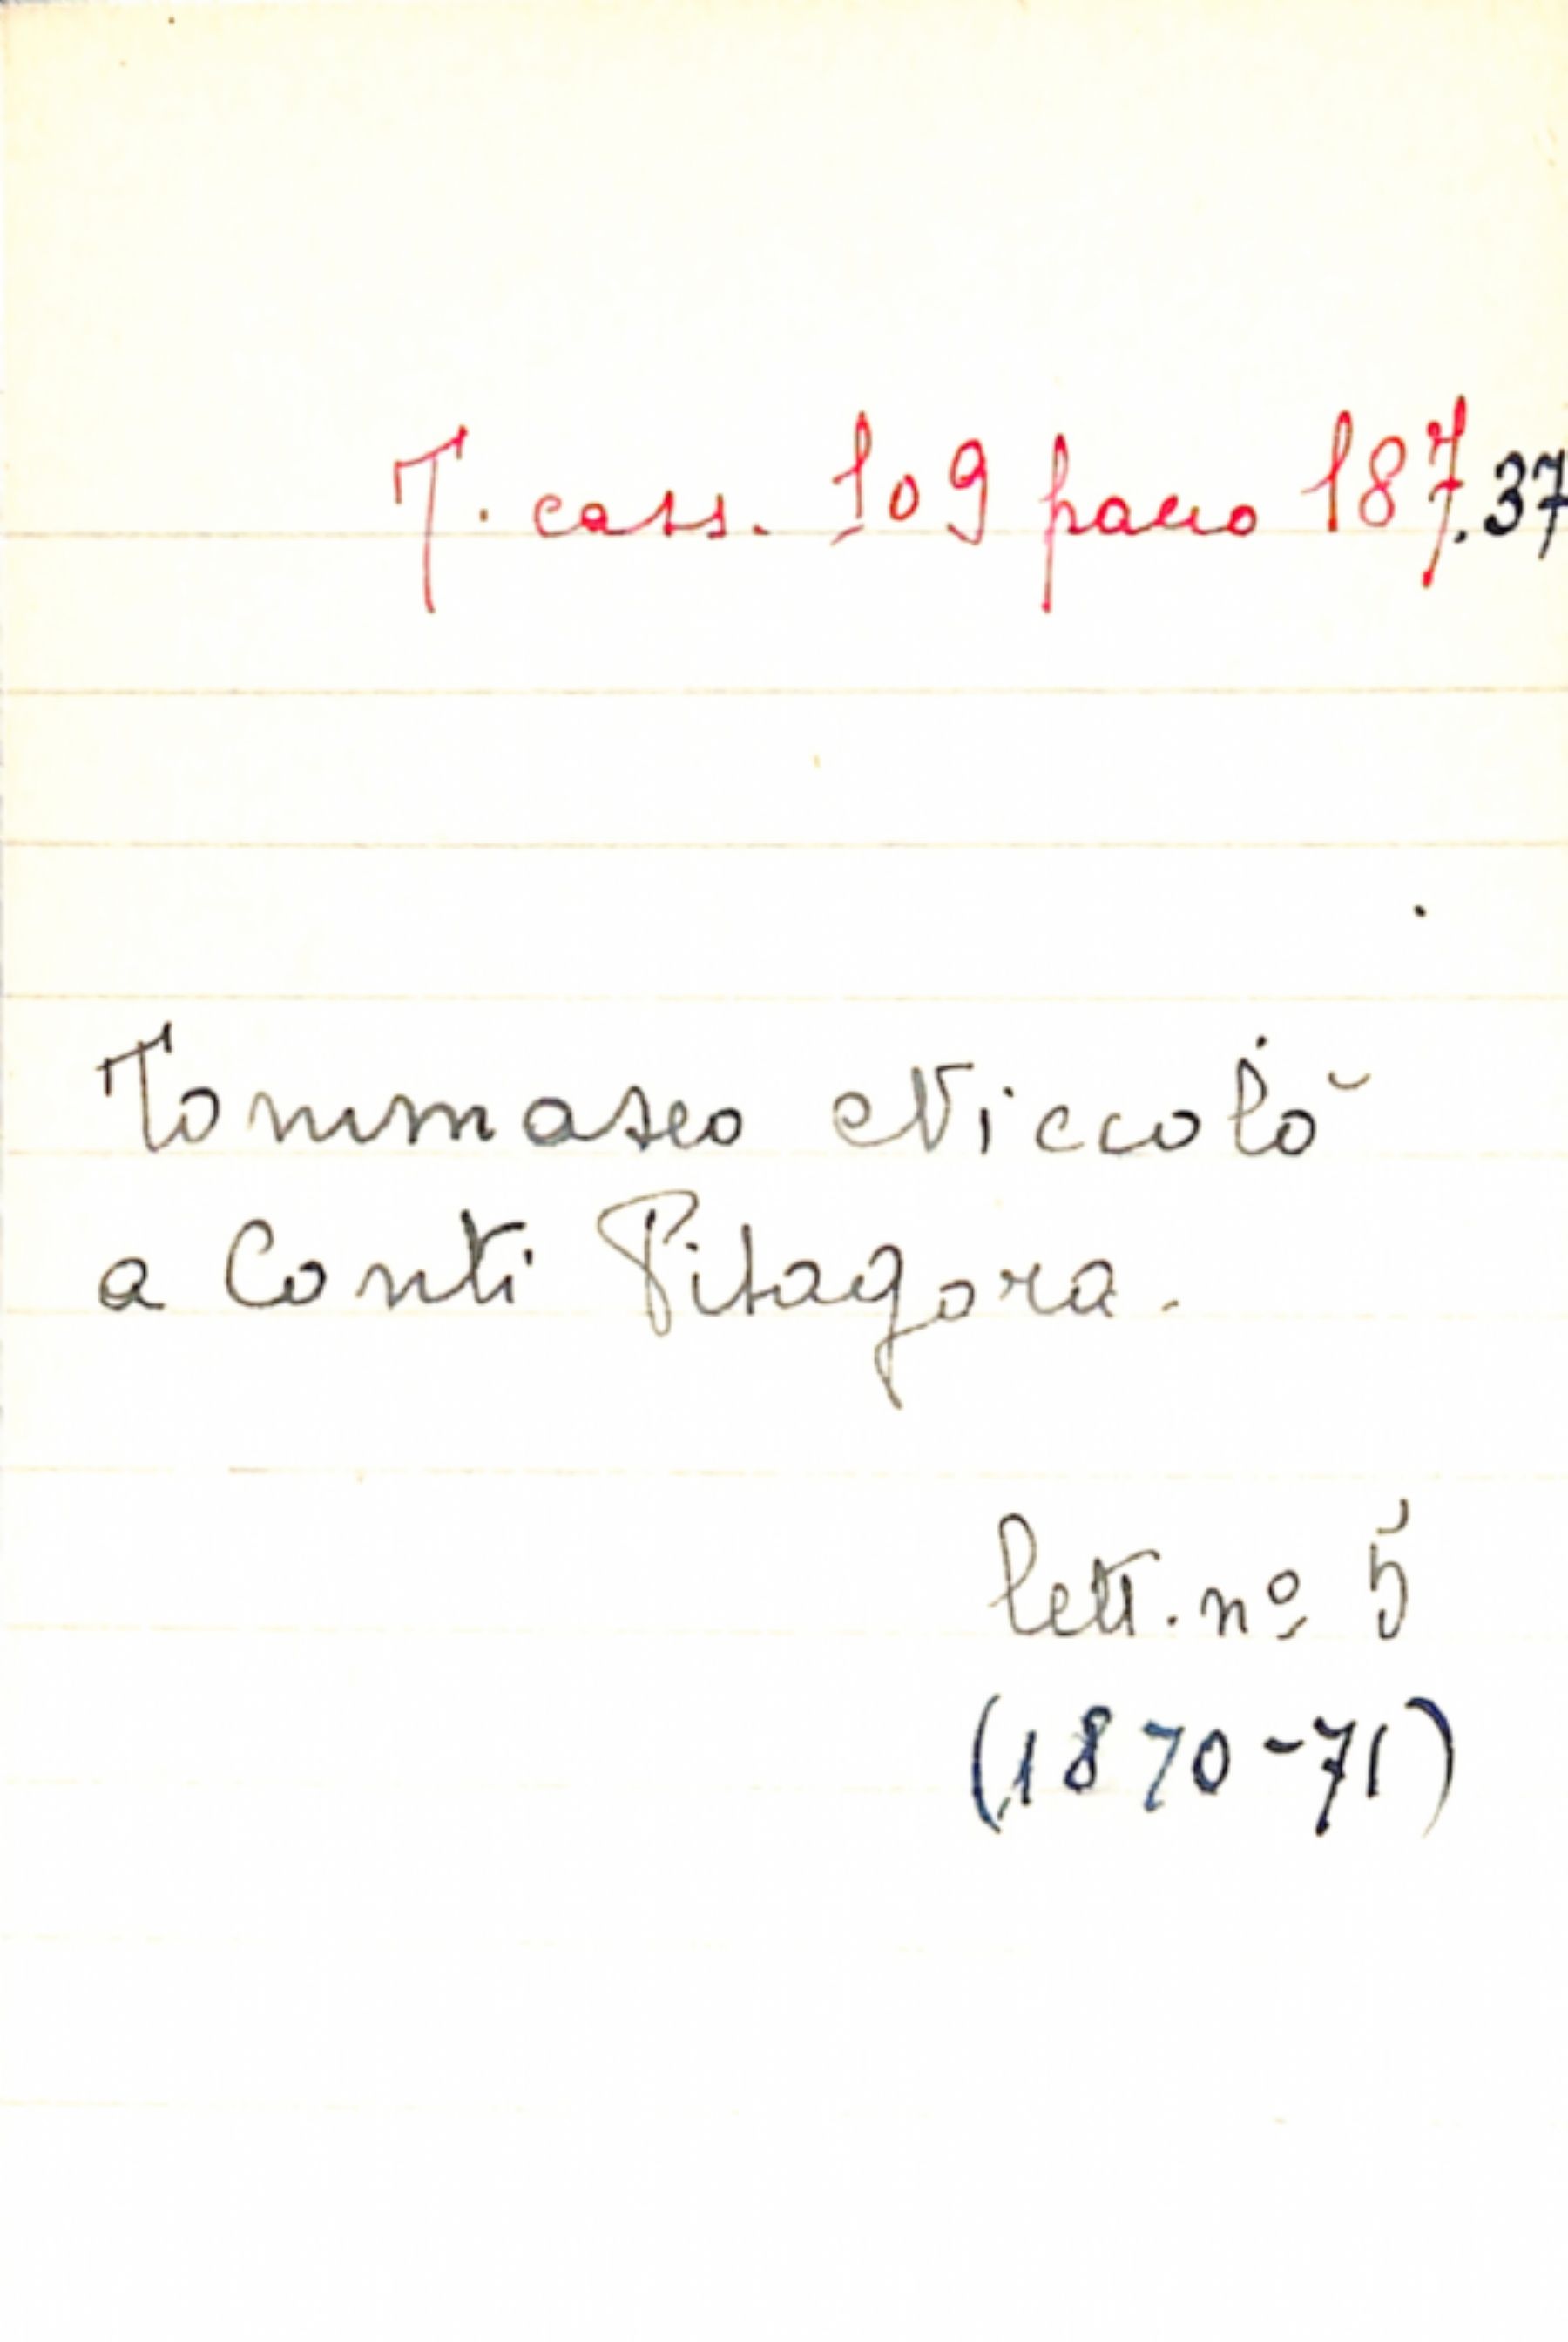 T. cass. 109 pacco 187.37
Tommaseo Niccolò
a Conti Pitagora.
lett. nº 5
(1870-71)